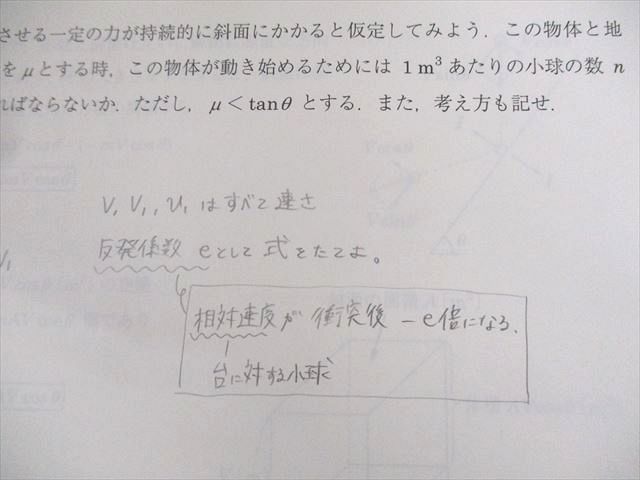 させる一定の力が持続的に斜面にかかると仮定してみよう．この物体と地
をμとする時，この物体が動き始めるためには 1m³あたりの小球の数 n
ればならないか．ただし，μ＜tanθとする．また，考え方も記せ．
V, V₁, U₁ はすべて速さ
反発係数 eとして 式をたてよ。
V₁
相対速度が 衝突後 －e倍になる.
台に対する小球